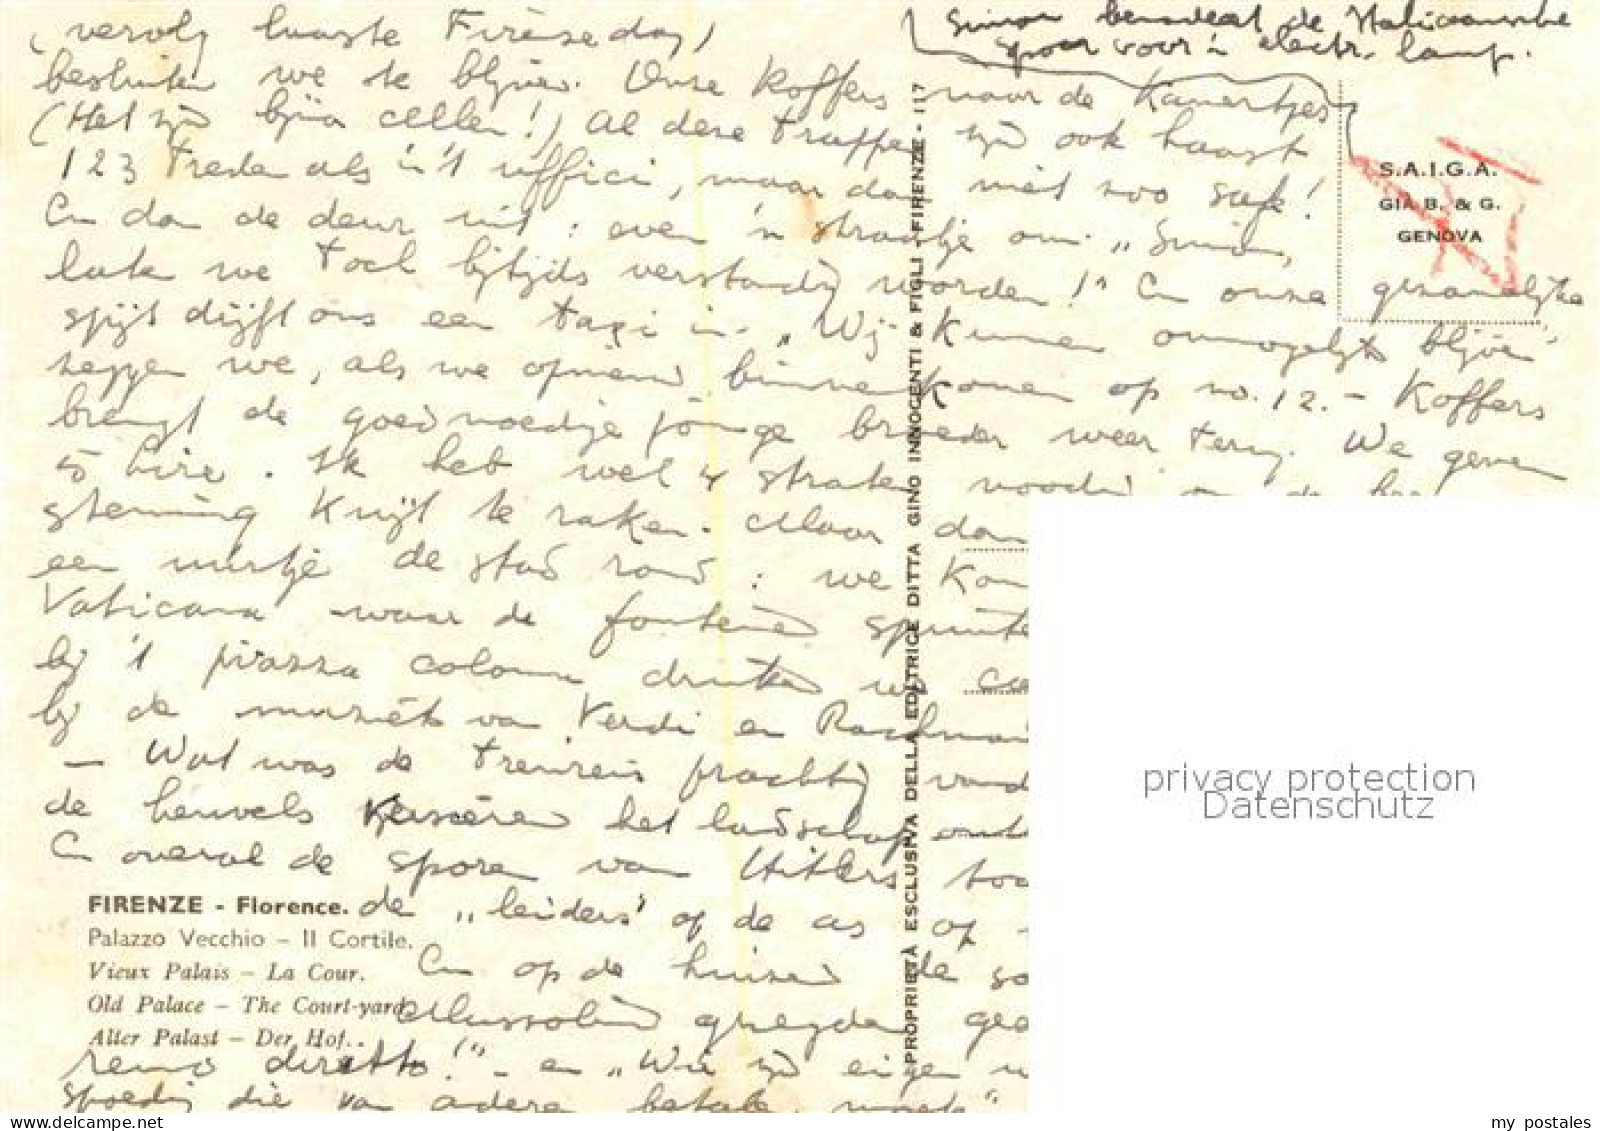 Simon bewondert de Italiaansche
spoor voor 'n electr. lamp.
(vervolg laatste Firenze dag)
besluiten we te blijven. Onze Koffers naar de Kamertjes
(Het zijn bijna cellen!) Al deze trappen zijn ook haast
123 treden als in 't uffici, maar dan niet zoo safe!
En dan de deur uit: even 'n straatje om. "Simon,
laten we toch bijtijds verstandig worden!" En onze gezamelijke
spijt drijft ons een taxi in. "Wij Kunnen onmogelijk blijven"
zeggen we, als we opnieuw binnenkomen op no. 12. - Koffers
brengt de goedmoedige jonge broeder weer terug. We geven
5 Lire. Ik heb wel 4 straten noodig om de
stemming Kwijt te raken. Maar dan
een uurtje de stad rond: we Kom
Vaticana waar de fonteinen spuite
bij 't piazza colonna drinken we
bij de muziek van Verdi en Rachmani
- Wat was de treinreis prachtig vand
de heuvels het landschap
En overal de sporen van Hitlers toc
de "leiders" of de as op
En op de huizen de
Mussolini gee
remo diretto!" - en "We zijn eigen
spoedig die van andere
S.A.I.G.A.
GIÀ B. & G.
GENOVA
PROPRIETÀ ESCLUSIVA DELLA EDITRICE DITTA GINO INNOCENTI & FIGLI - FIRENZE - 117
FIRENZE - Florence.
Palazzo Vecchio - Il Cortile.
Vieux Palais - La Cour.
Old Palace - The Court-yard.
Alter Palast - Der Hof.
privacy protection
Datenschutz
delcampe.net
my_postales